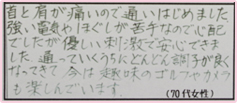 首と肩が痛いので通いはじめました。
強い電気やほぐしが苦手なので心配
でしたが優しい刺激で安心できま
した。通っていくうちにどんどん調子が良く
なってきて、今は趣味のゴルフやカメラ
も楽しんでいます。
(70代女性)